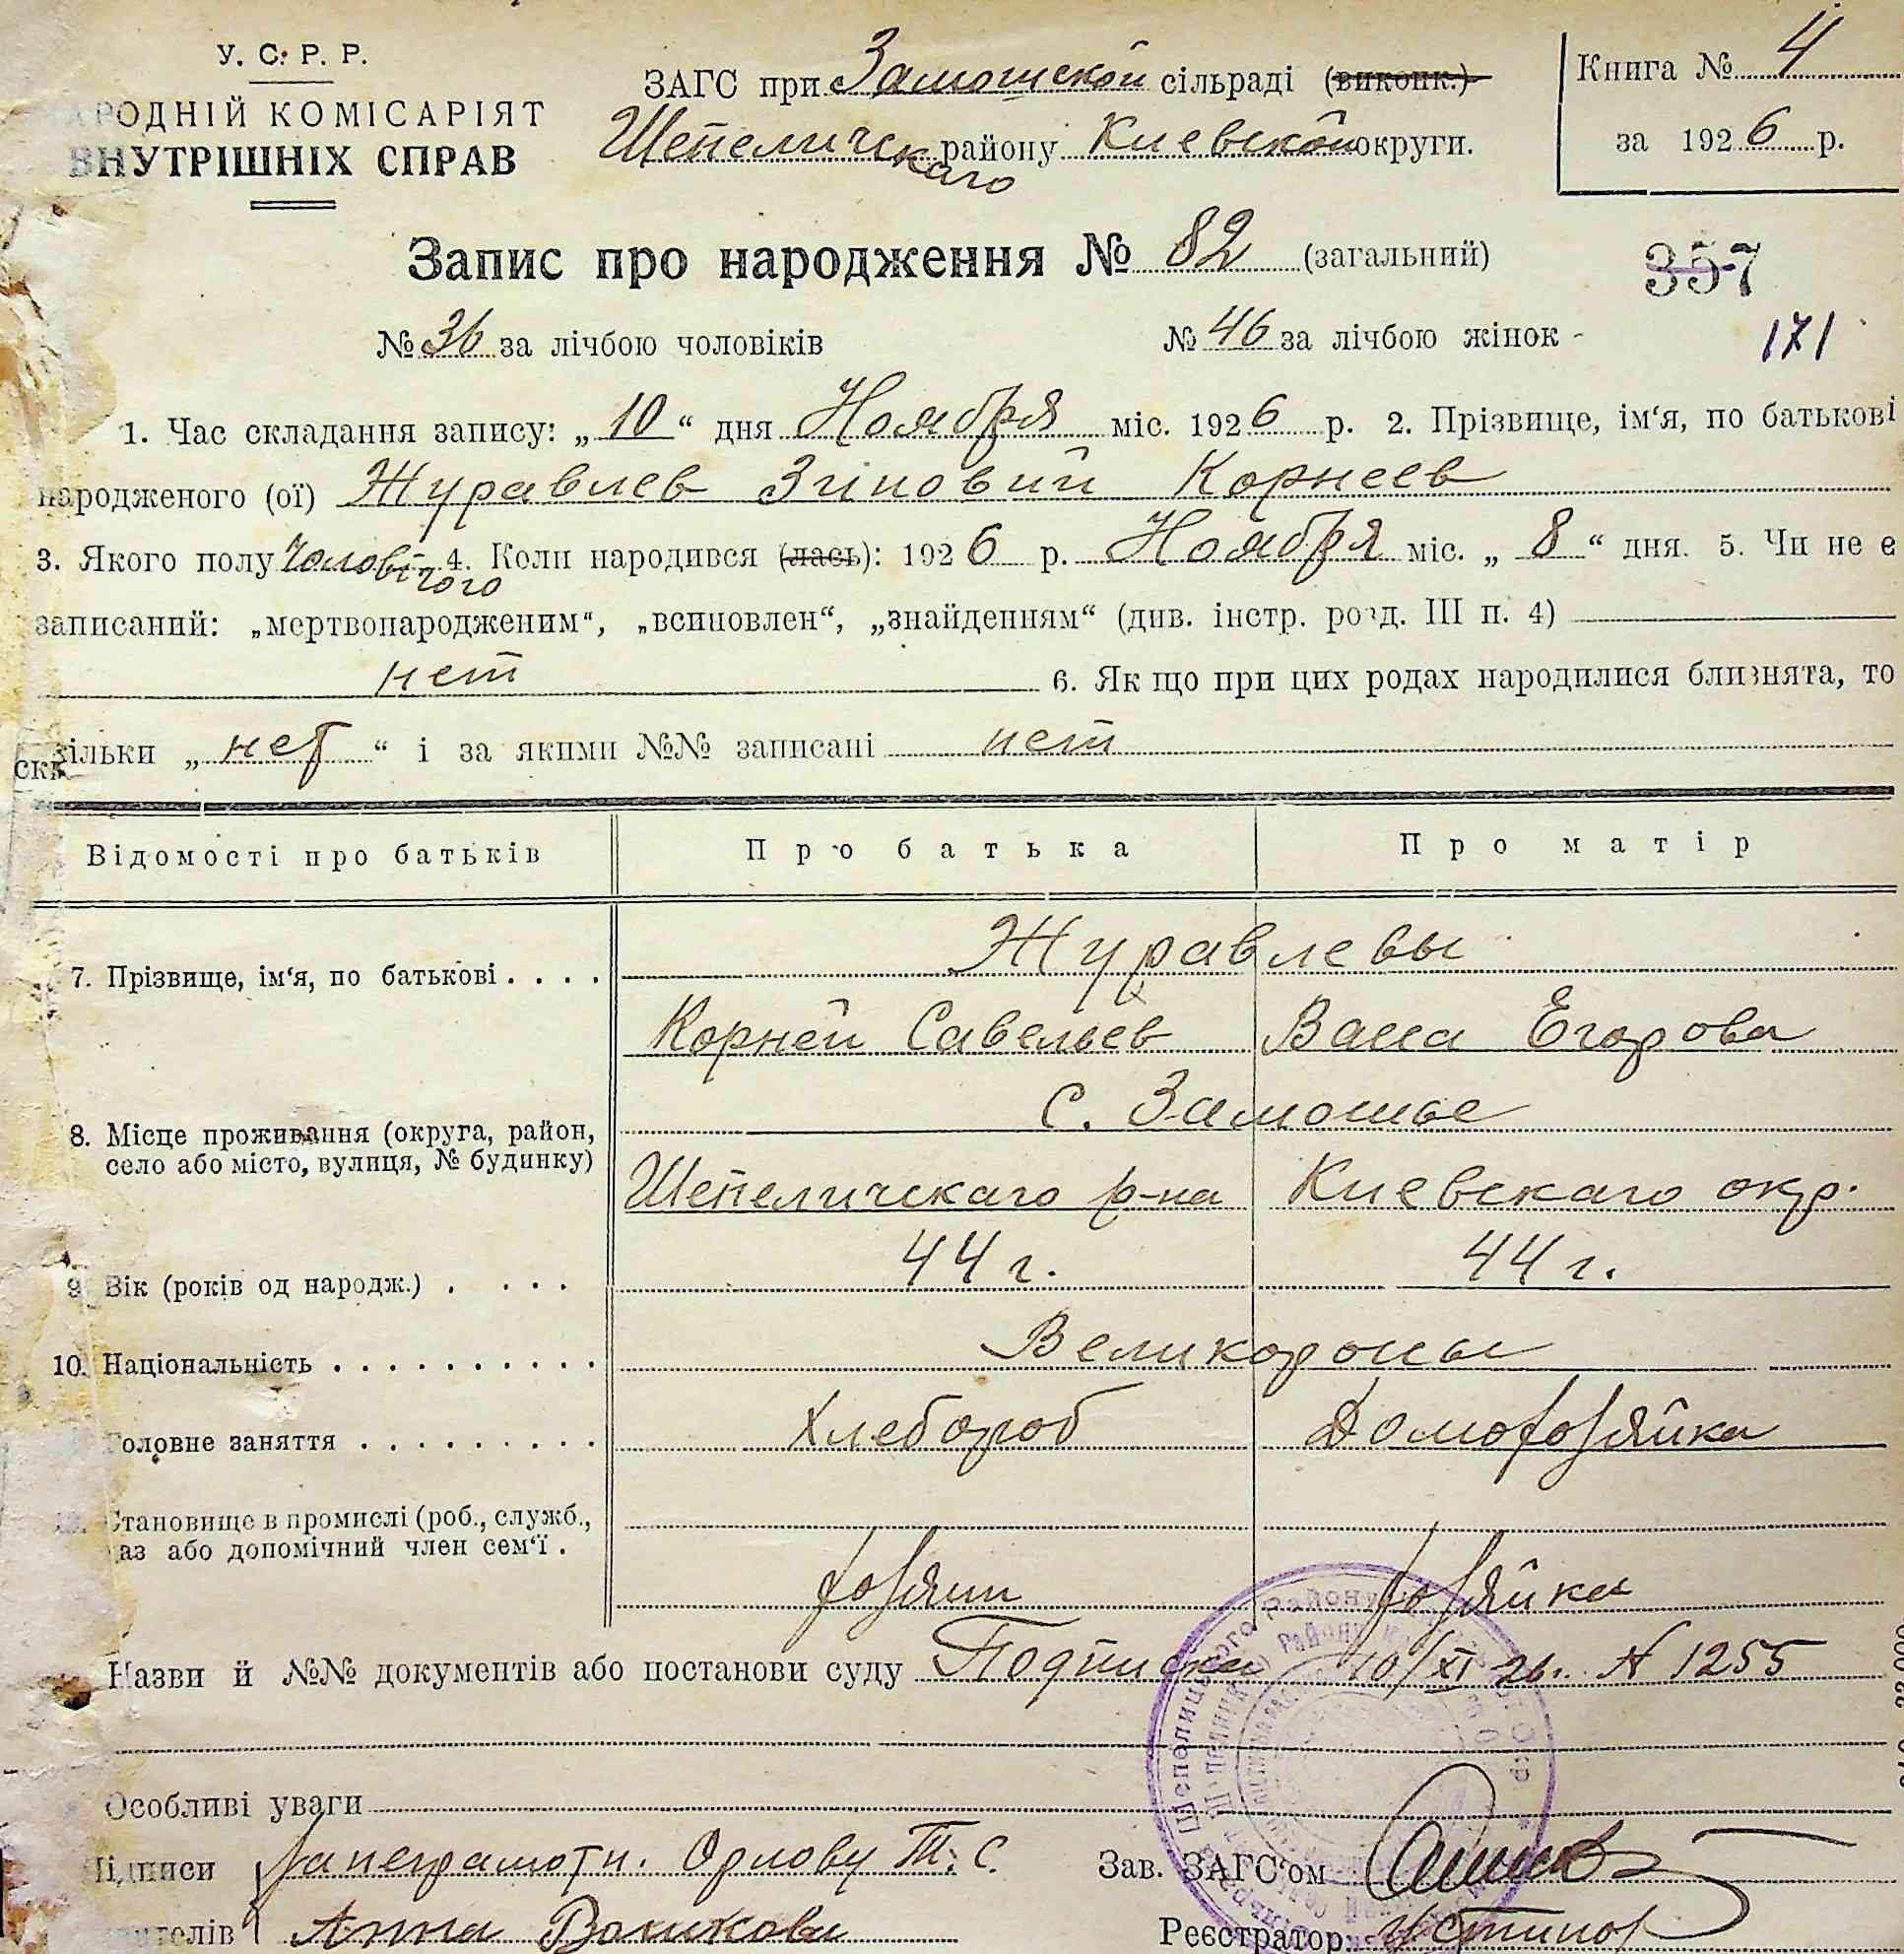 У. С. Р. Р.
НАРОДНІЙ КОМІСАРІЯТ
ВНУТРІШНІХ СПРАВ
ЗАГС при Замошской сільраді (виконк.)
Шепеличскаго району Киевской округи.
Книга № 4
за 1926 р.
Запис про народження № 82 (загальний)
357
№ 36 за лічбою чоловіків № 46 за лічбою жінок -
171
1. Час складання запису: „10“ дня Ноября міс. 1926 р. 2. Прізвище, ім‘я, по батькові
народженого (ої) Журавлев Зиновий Корнеев
3. Якого полу чоловічого 4. Коли народився (лась): 1926 р. Ноября міс. „8“ дня. 5. Чи не є
записаний: „мертвонародженим“, „всиновлен“, „знайденням“ (див. інстр. розд. III п. 4)
нет 6. Як що при цих родах народилися близнята, то
скільки „нет“ і за якими №№ записані нет
Відомості про батьків Про батька Про матір
Журавлевы
7. Прізвище, ім‘я, по батькові . . . .
Корней Савельев Васса Егорова
С. Замошье
8. Місце проживання (округа, район,
село або місто, вулиця, № будинку)
Шепеличскаго р-на Киевскаго окр.
9. Вік (років од народж.) . . . . 44 г. 44 г.
10. Національність . . . . . . . . . . Великороссы
Головне заняття . . . . . . . . . Хлебороб Домохозяйка
Становище в промислі (роб., служб.,
аз або допомічний член сем‘ї .
хозяин хозяйка
Назви й №№ документів або постанови суду Подписка 10/XI 26г. № 1255
Особливі уваги
Підписи За неграмотн. Орлову Т. С. Зав. ЗАГС‘ом
Анна Реєстратор: Устинов